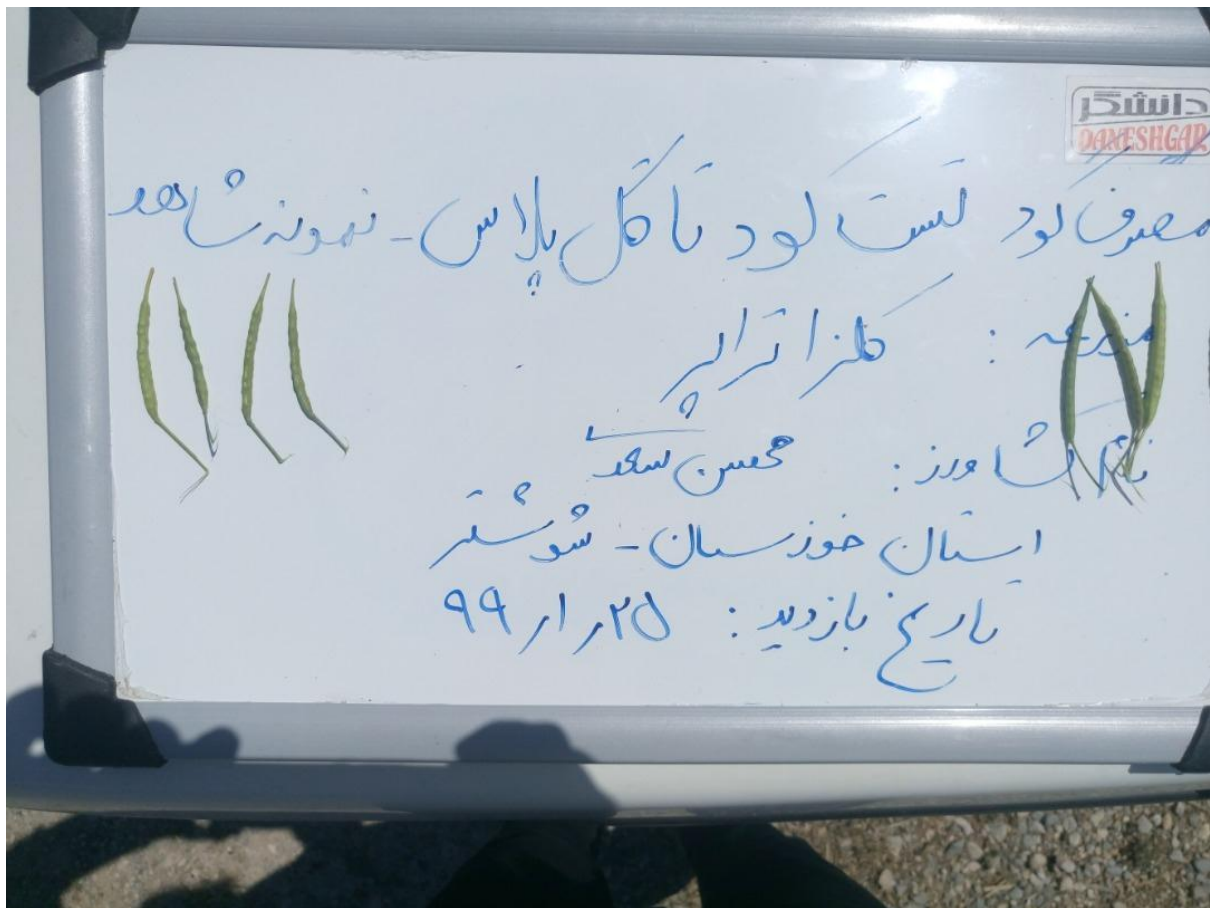 دانشگر
DANESHGAR
مصرف کود تست کود تاکل پلاس - نمونه شاهد
مزرعه : کلزا تراپر
نام کشاورز : محسن سعد
استان خوزستان - شوشتر
تاریخ بازدید : ۲۵ ر ۱ ر ۹۹